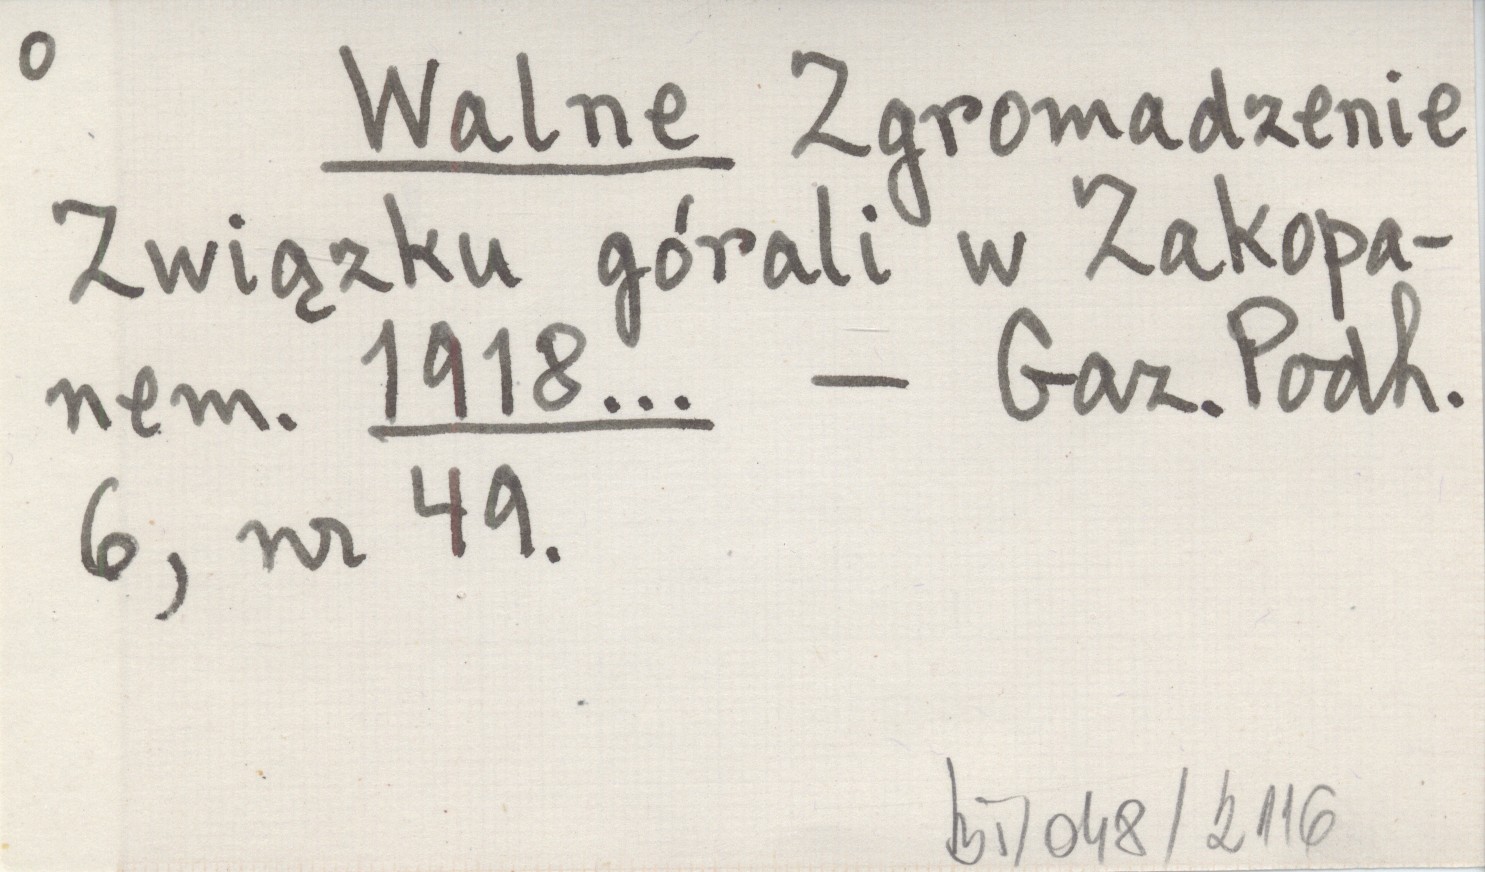 o
Walne Zgromadzenie
Związku górali w Zakopa-
nem. 1918... — Gaz. Podh.
6, nr 49.
/048/2116